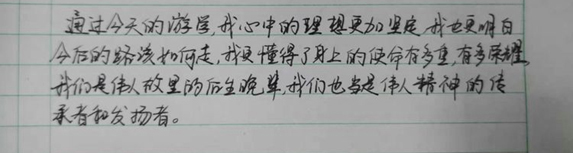 通过今天的游学,我心中的理想更加坚定,我也更明白
今后的路该如何走,我更懂得了身上的使命有多重,有多荣耀,
我们是伟人故里的后生晚辈,我们也当是伟人精神的传
承者和发扬者。